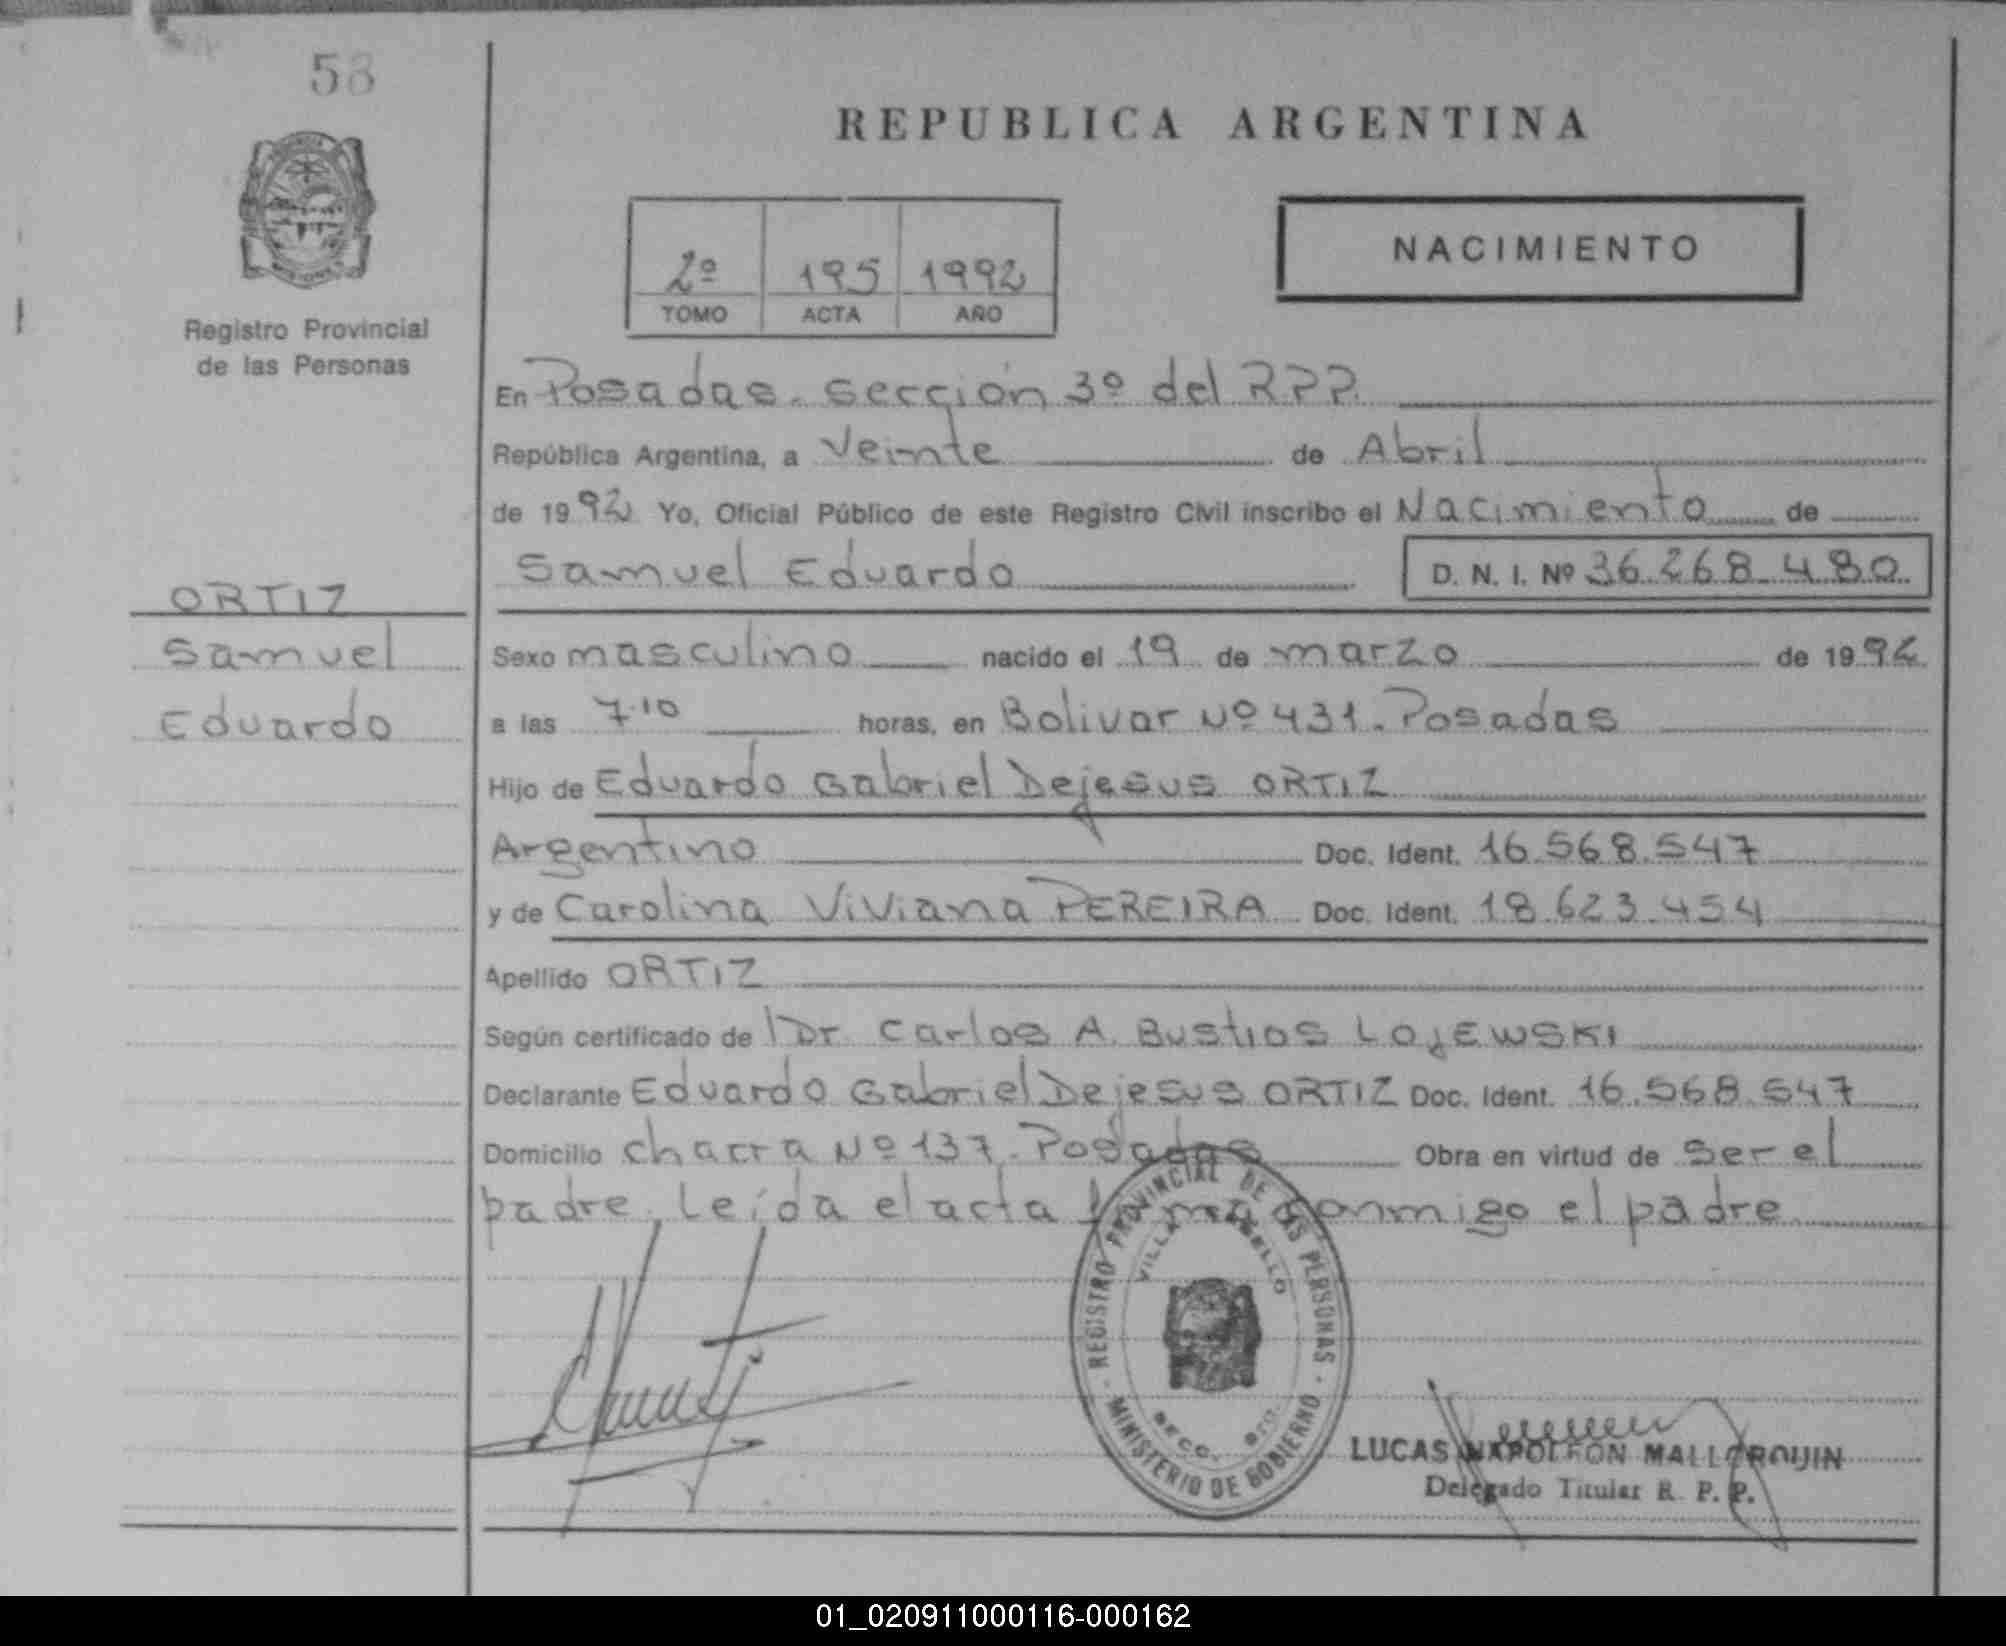 58
REPUBLICA ARGENTINA
2º 195 1992
TOMO ACTA AÑO
NACIMIENTO
Registro Provincial
de las Personas
En Posadas. sección 3º del R.P.P.
República Argentina, a Veinte de Abril
de 1992 Yo, Oficial Público de este Registro Civil inscribo el Nacimiento de
Samuel Eduardo D. N. I. Nº 36.268.480
ORTIZ
Samuel
Eduardo
Sexo masculino nacido el 19 de marzo de 1992
a las 7.10 horas, en Bolivar Nº 431. Posadas
Hijo de Eduardo Gabriel Dejesus ORTIZ
Argentino Doc. Ident. 16.568.547
y de Carolina Viviana PEREIRA Doc. Ident. 18.623.454
Apellido ORTIZ
Según certificado de Dr. Carlos A. Bustios LOJEWSKI
Declarante Eduardo Gabriel Dejesus ORTIZ Doc. Ident. 16.568.547
Domicilio chacra Nº 137. Posadas Obra en virtud de ser el
padre, Leída el acta firma conmigo el padre
REGISTRO PROVINCIAL DE LAS PERSONAS
MINISTERIO DE GOBIERNO
VILLA
LUCAS NAPOLEON MALLORQUIN
Delegado Titular R. P. P.
01_020911000116-000162